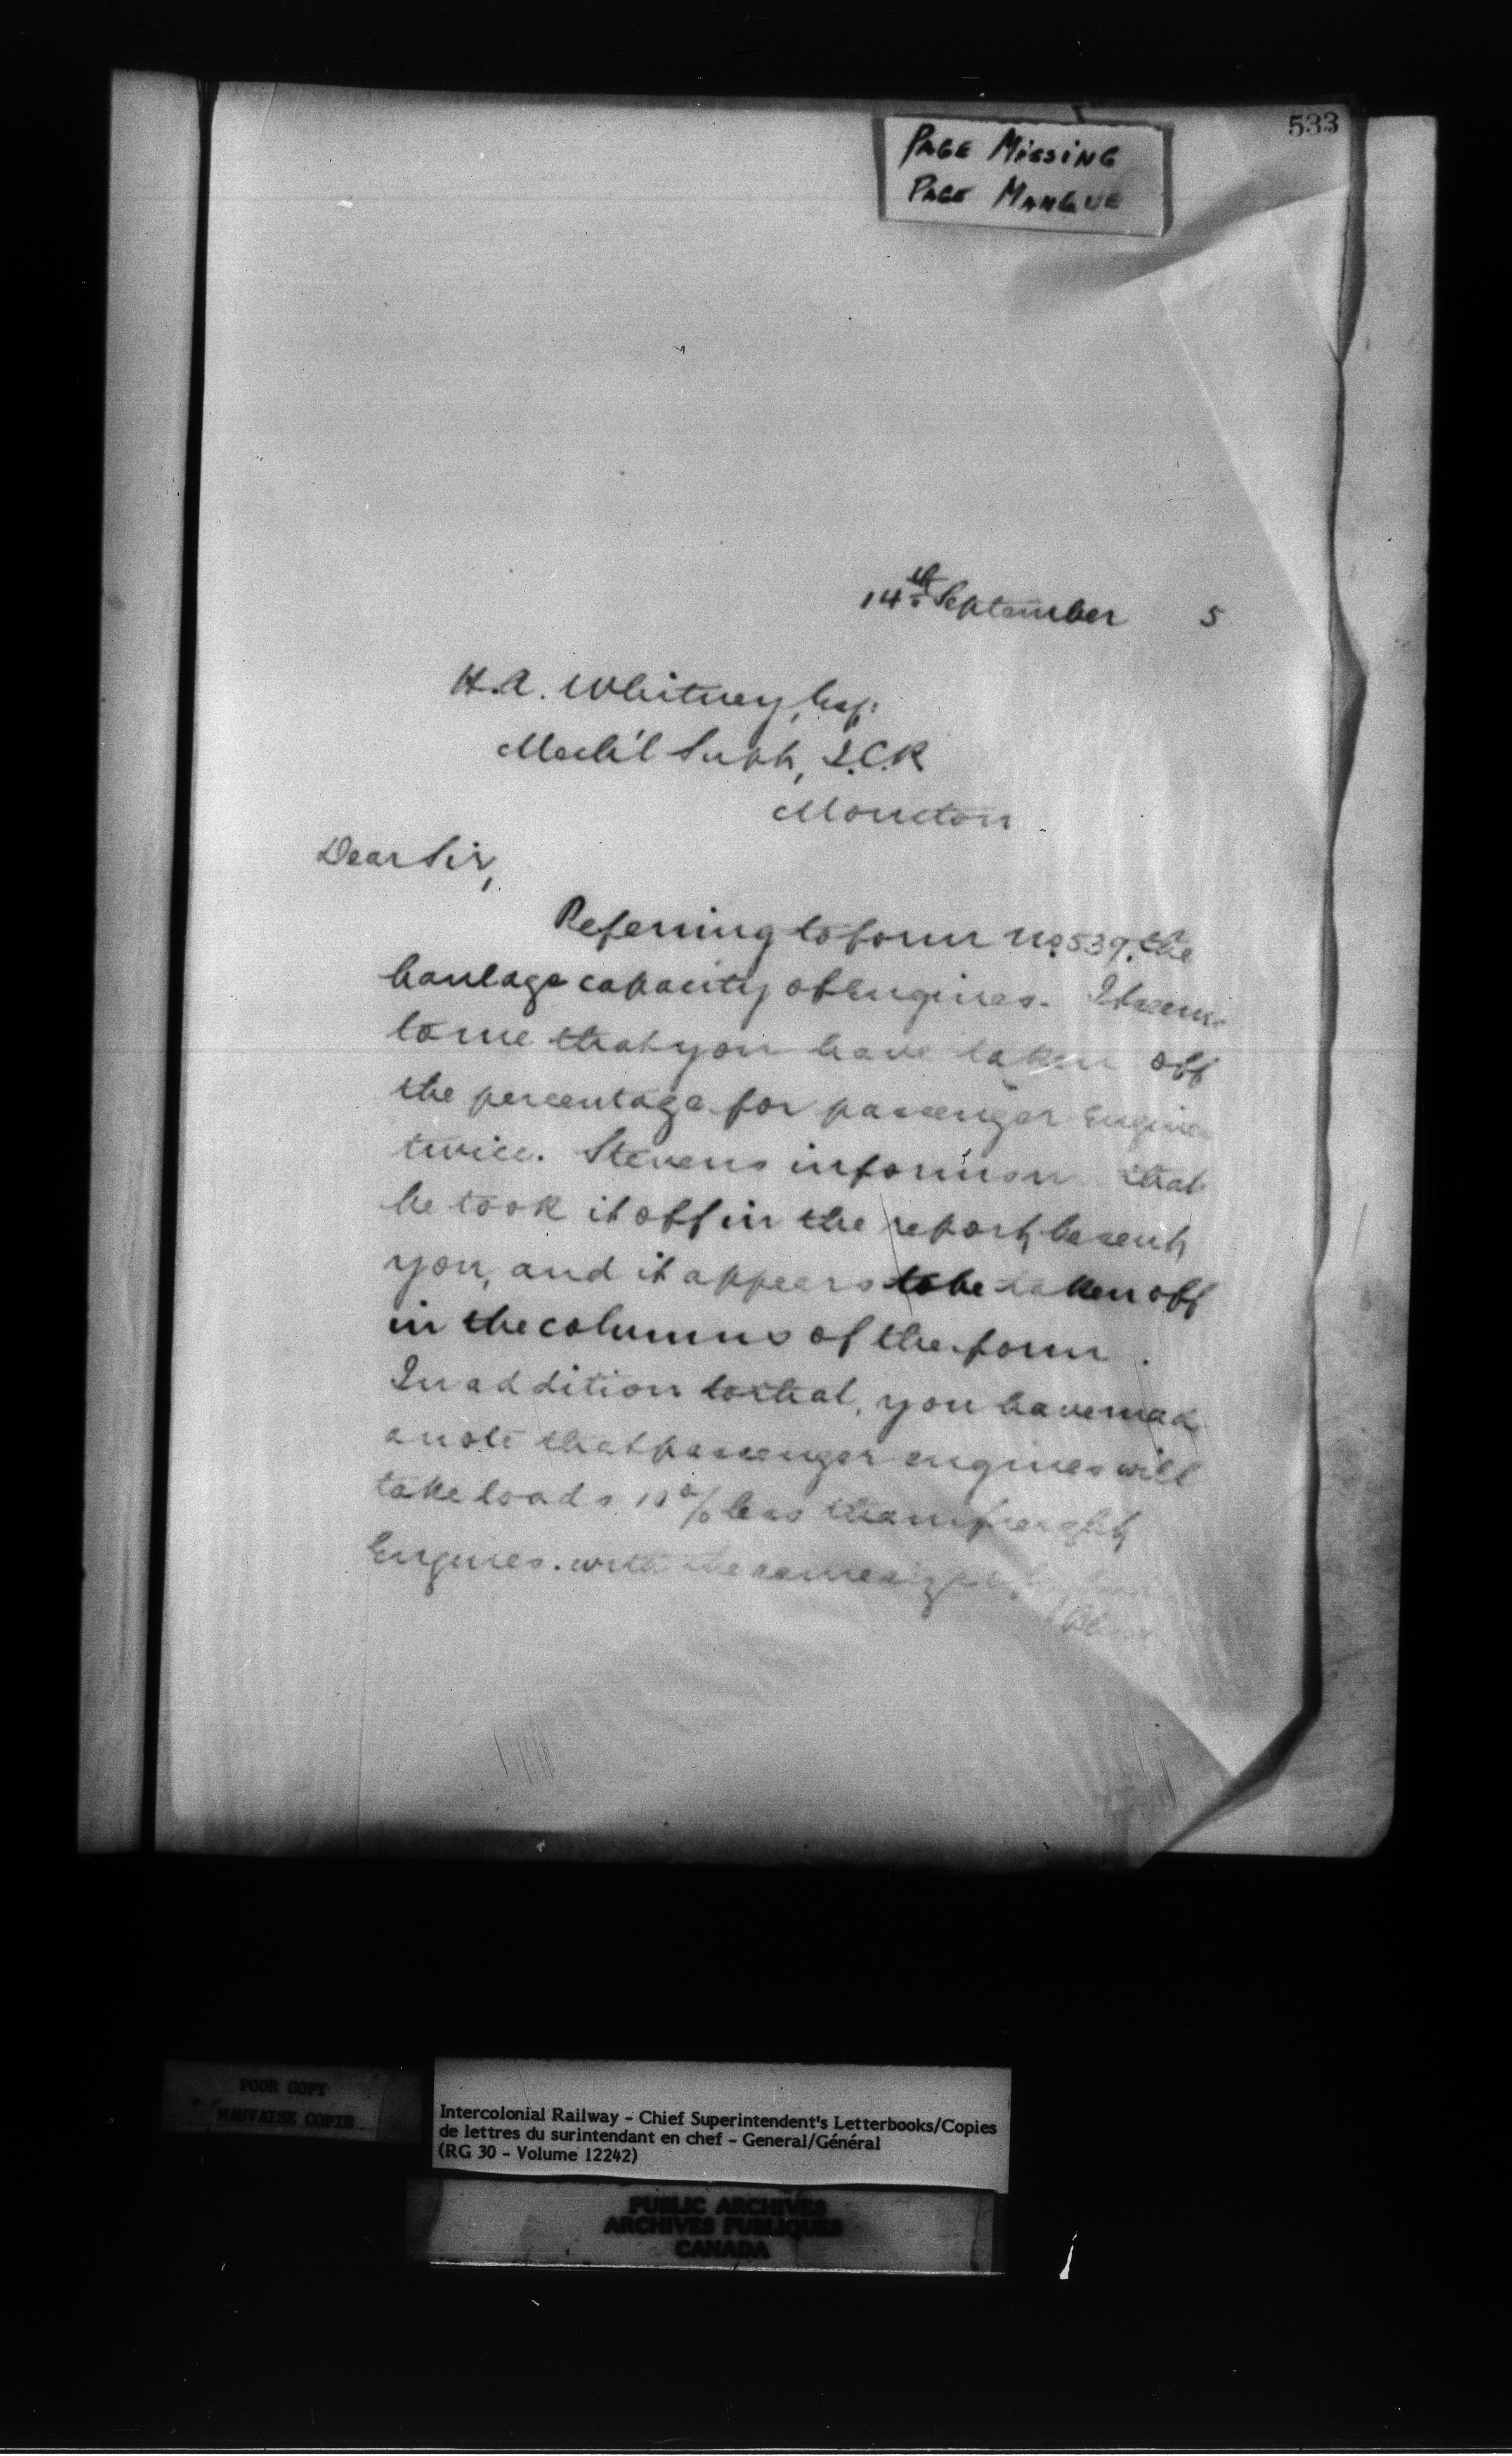 533
PAGE MISSING
PAGE MANQUE
14th September 5
H.A. Whitney, Esq:
Mech'l Supt, I.C.R
Moncton
Dear Sir,
Referring to form No. 539, the
haulage capacity of Engines. It seems
to me that you have taken off
the percentage for passenger Engines
twice. Stevens informs me that
he took it off in the report, he sent
you, and it appears to be taken off
in the columns of the form.
In addition to that, you have made
a note that passenger engines will
take loads 10% less than freight
Engines. with the same size
POOR COPY
MAUVAISE COPIE
Intercolonial Railway - Chief Superintendent's Letterbooks/Copies
de lettres du surintendant en chef - General/Général
(RG 30 - Volume 12242)
PUBLIC ARCHIVES
ARCHIVES PUBLIQUES
CANADA